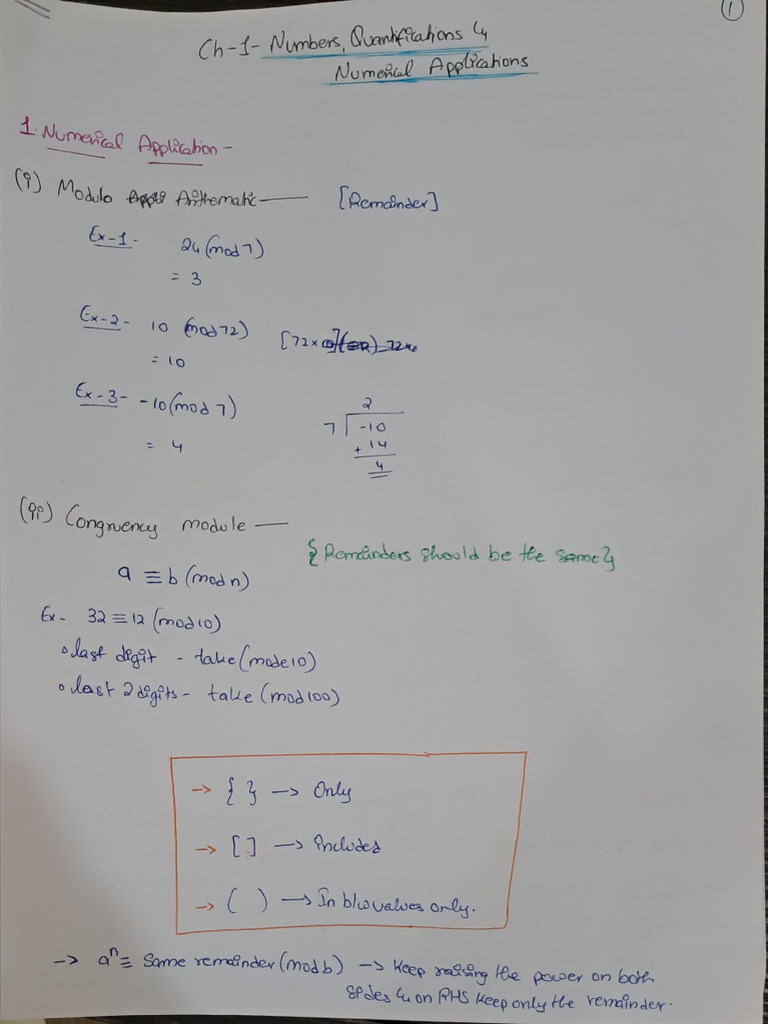 1
Ch-1- Numbers, Quantifications &
Numerical Applications
1. Numerical Application -
(i) Modulo Arithematic — [Remainder]
Ex-1- 24 (mod 7)
= 3
Ex-2- 10 (mod 72) [72x
= 10
Ex-3- -10 (mod 7)
= 4
2
7 -10
+ 14
4
(ii) Congruency module —
{Remainders should be the same}
a ≡ b (mod n)
Ex- 32 ≡ 12 (mod 10)
• last digit - take (mode 10)
• last 2 digits - take (mod 100)
→ { } → Only
→ [ ] → Includes
→ ( ) → In b/w values only.
→ aⁿ ≡ Same remainder (mod b) → Keep raising the power on both
sides & on RHS keep only the remainder.